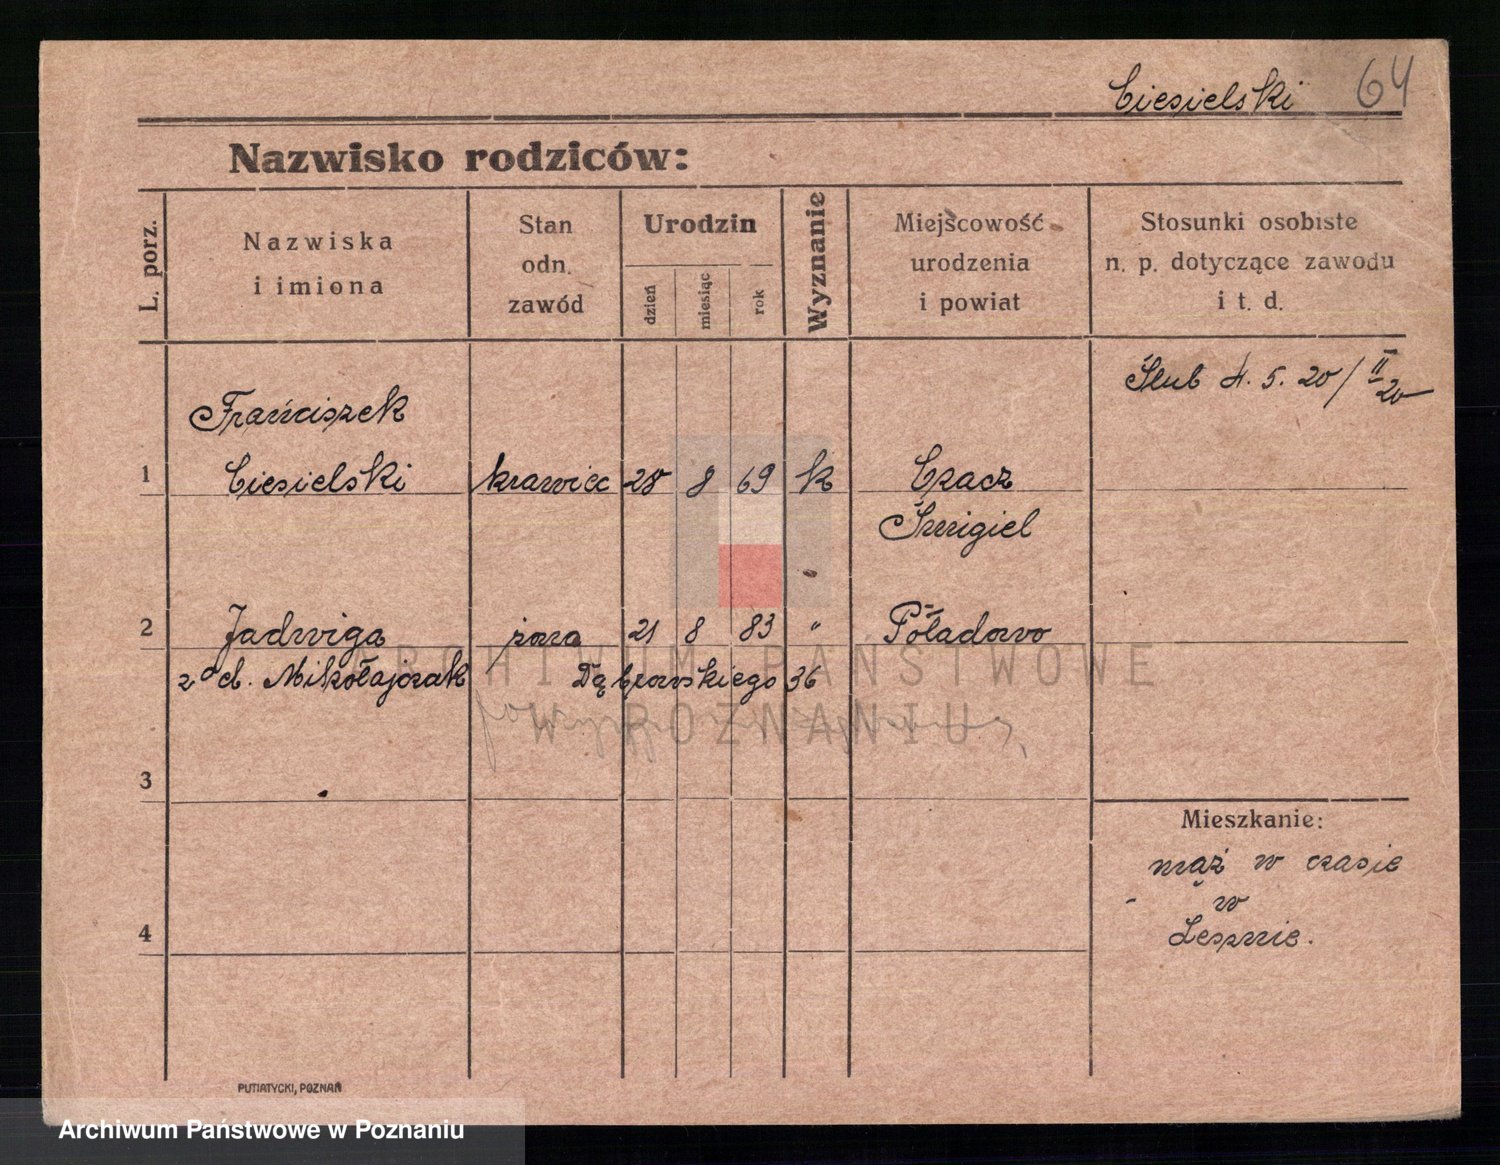 Ciesielski 64
Nazwisko rodziców:
L. porz.
Nazwiska
i imiona
Stan
odn.
zawód
Urodzin
dzień
miesiąc
rok
Wyznanie
Miejscowość
urodzenia
i powiat
Stosunki osobiste
n. p. dotyczące zawodu
i t. d.
Ślub 4. 5. 20 / II 20
Franciszek
1 Ciesielski krawiec 28 8 69 k Czacz
Śmigiel
2 Jadwiga żona 21 8 83 " Poładowo
z d. Mikołajczak Dąbrowskiego 36
ARCHIWUM PAŃSTWOWE
W POZNANIU
3
Mieszkanie:
mąż w czasie
- w
Lesznie.
4
PUTIATYCKI, POZNAŃ
Archiwum Państwowe w Poznaniu